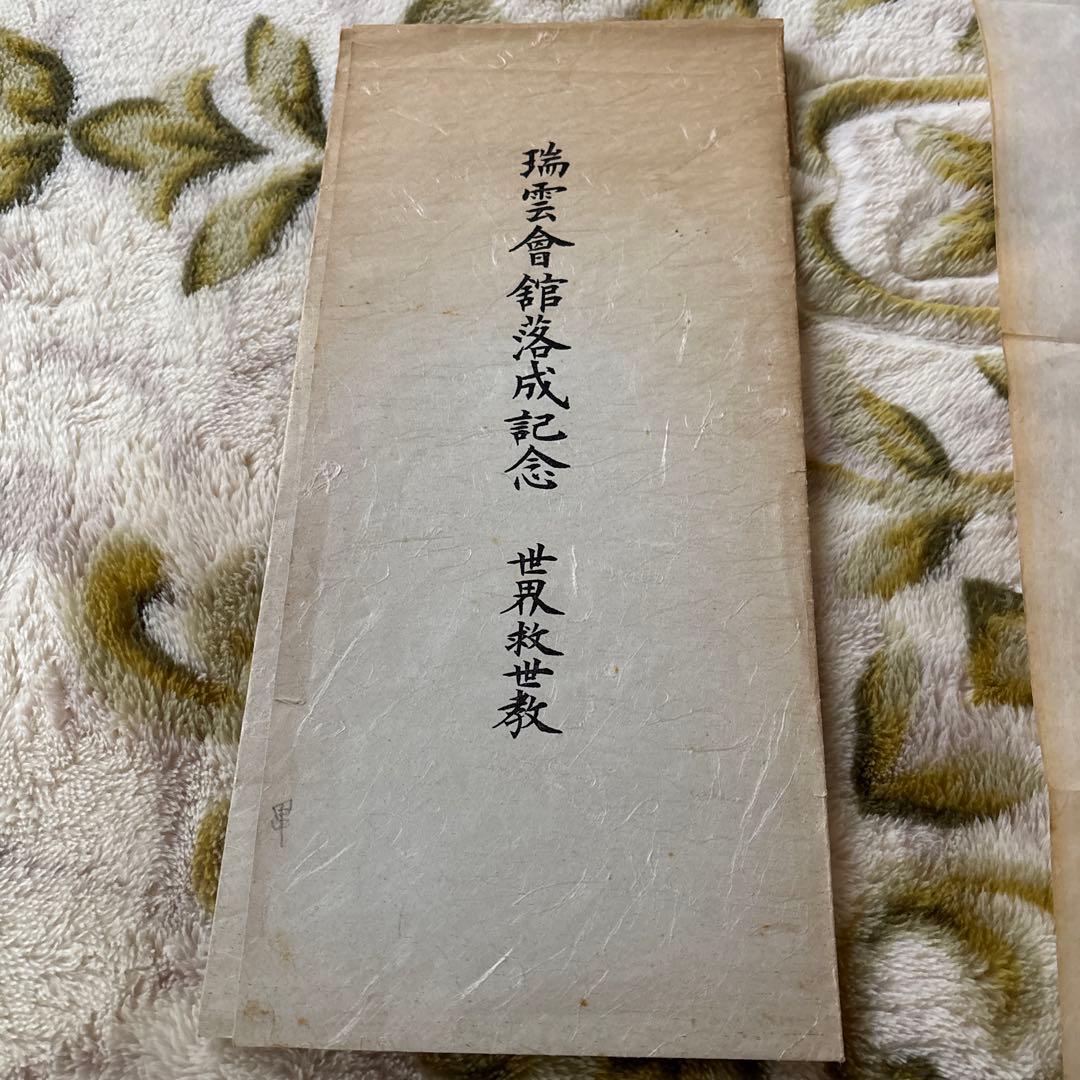 瑞雲會舘落成記念　世界救世教